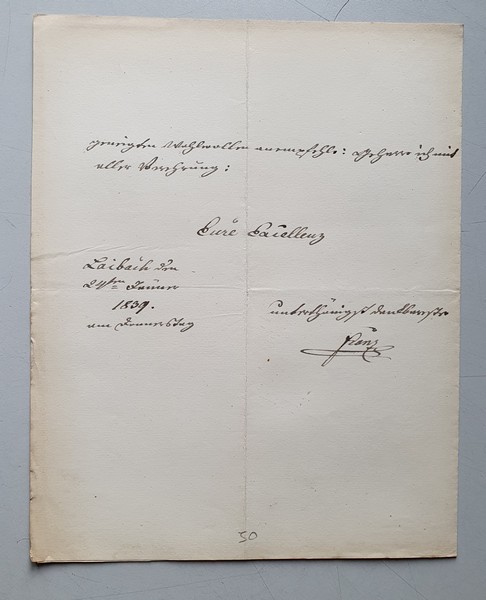 geneigten Wohlwollen anempfehle: Geharre ich mit
aller Verehrung:
Eure Excellenz
Laibach den
24ten Jänner
1839.
am Donnerstag
unterthänigst dankbarster
Franz
50